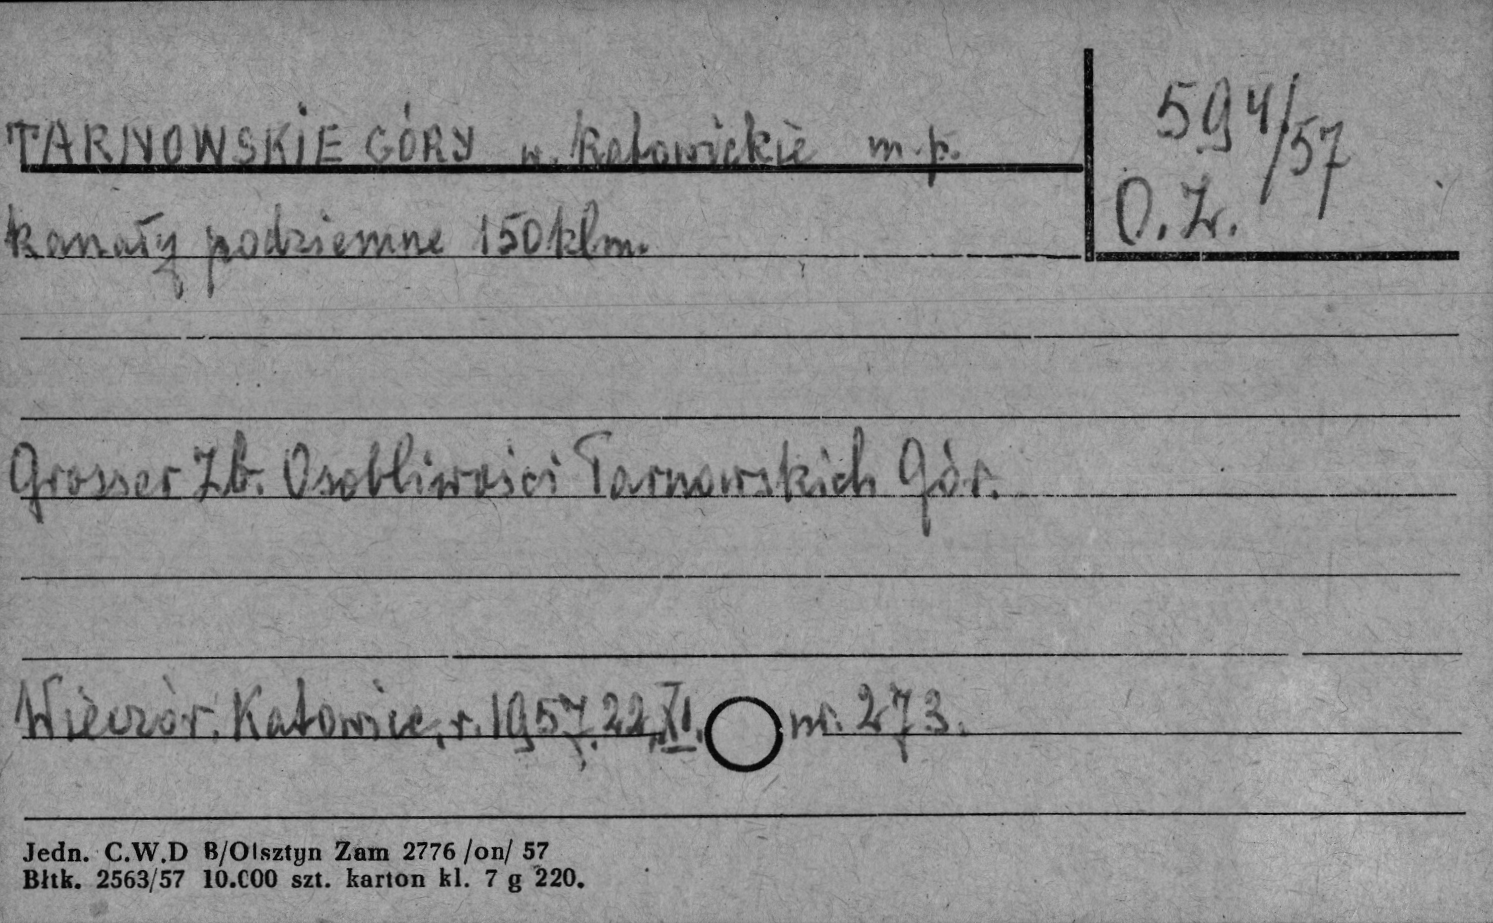 TARNOWSKIE GÓRY w. katowickie m.p.
594/57
O.Z.
kanały podziemne 150 klm.
Grosser Zb. Osobliwości Tarnowskich Gór.
Wieczór. Katowice, r. 1957.22.XI. nr. 273.
Jedn. C.W.D B/Olsztyn Zam 2776 /on/ 57
Błtk. 2563/57 10.000 szt. karton kl. 7 g 220.